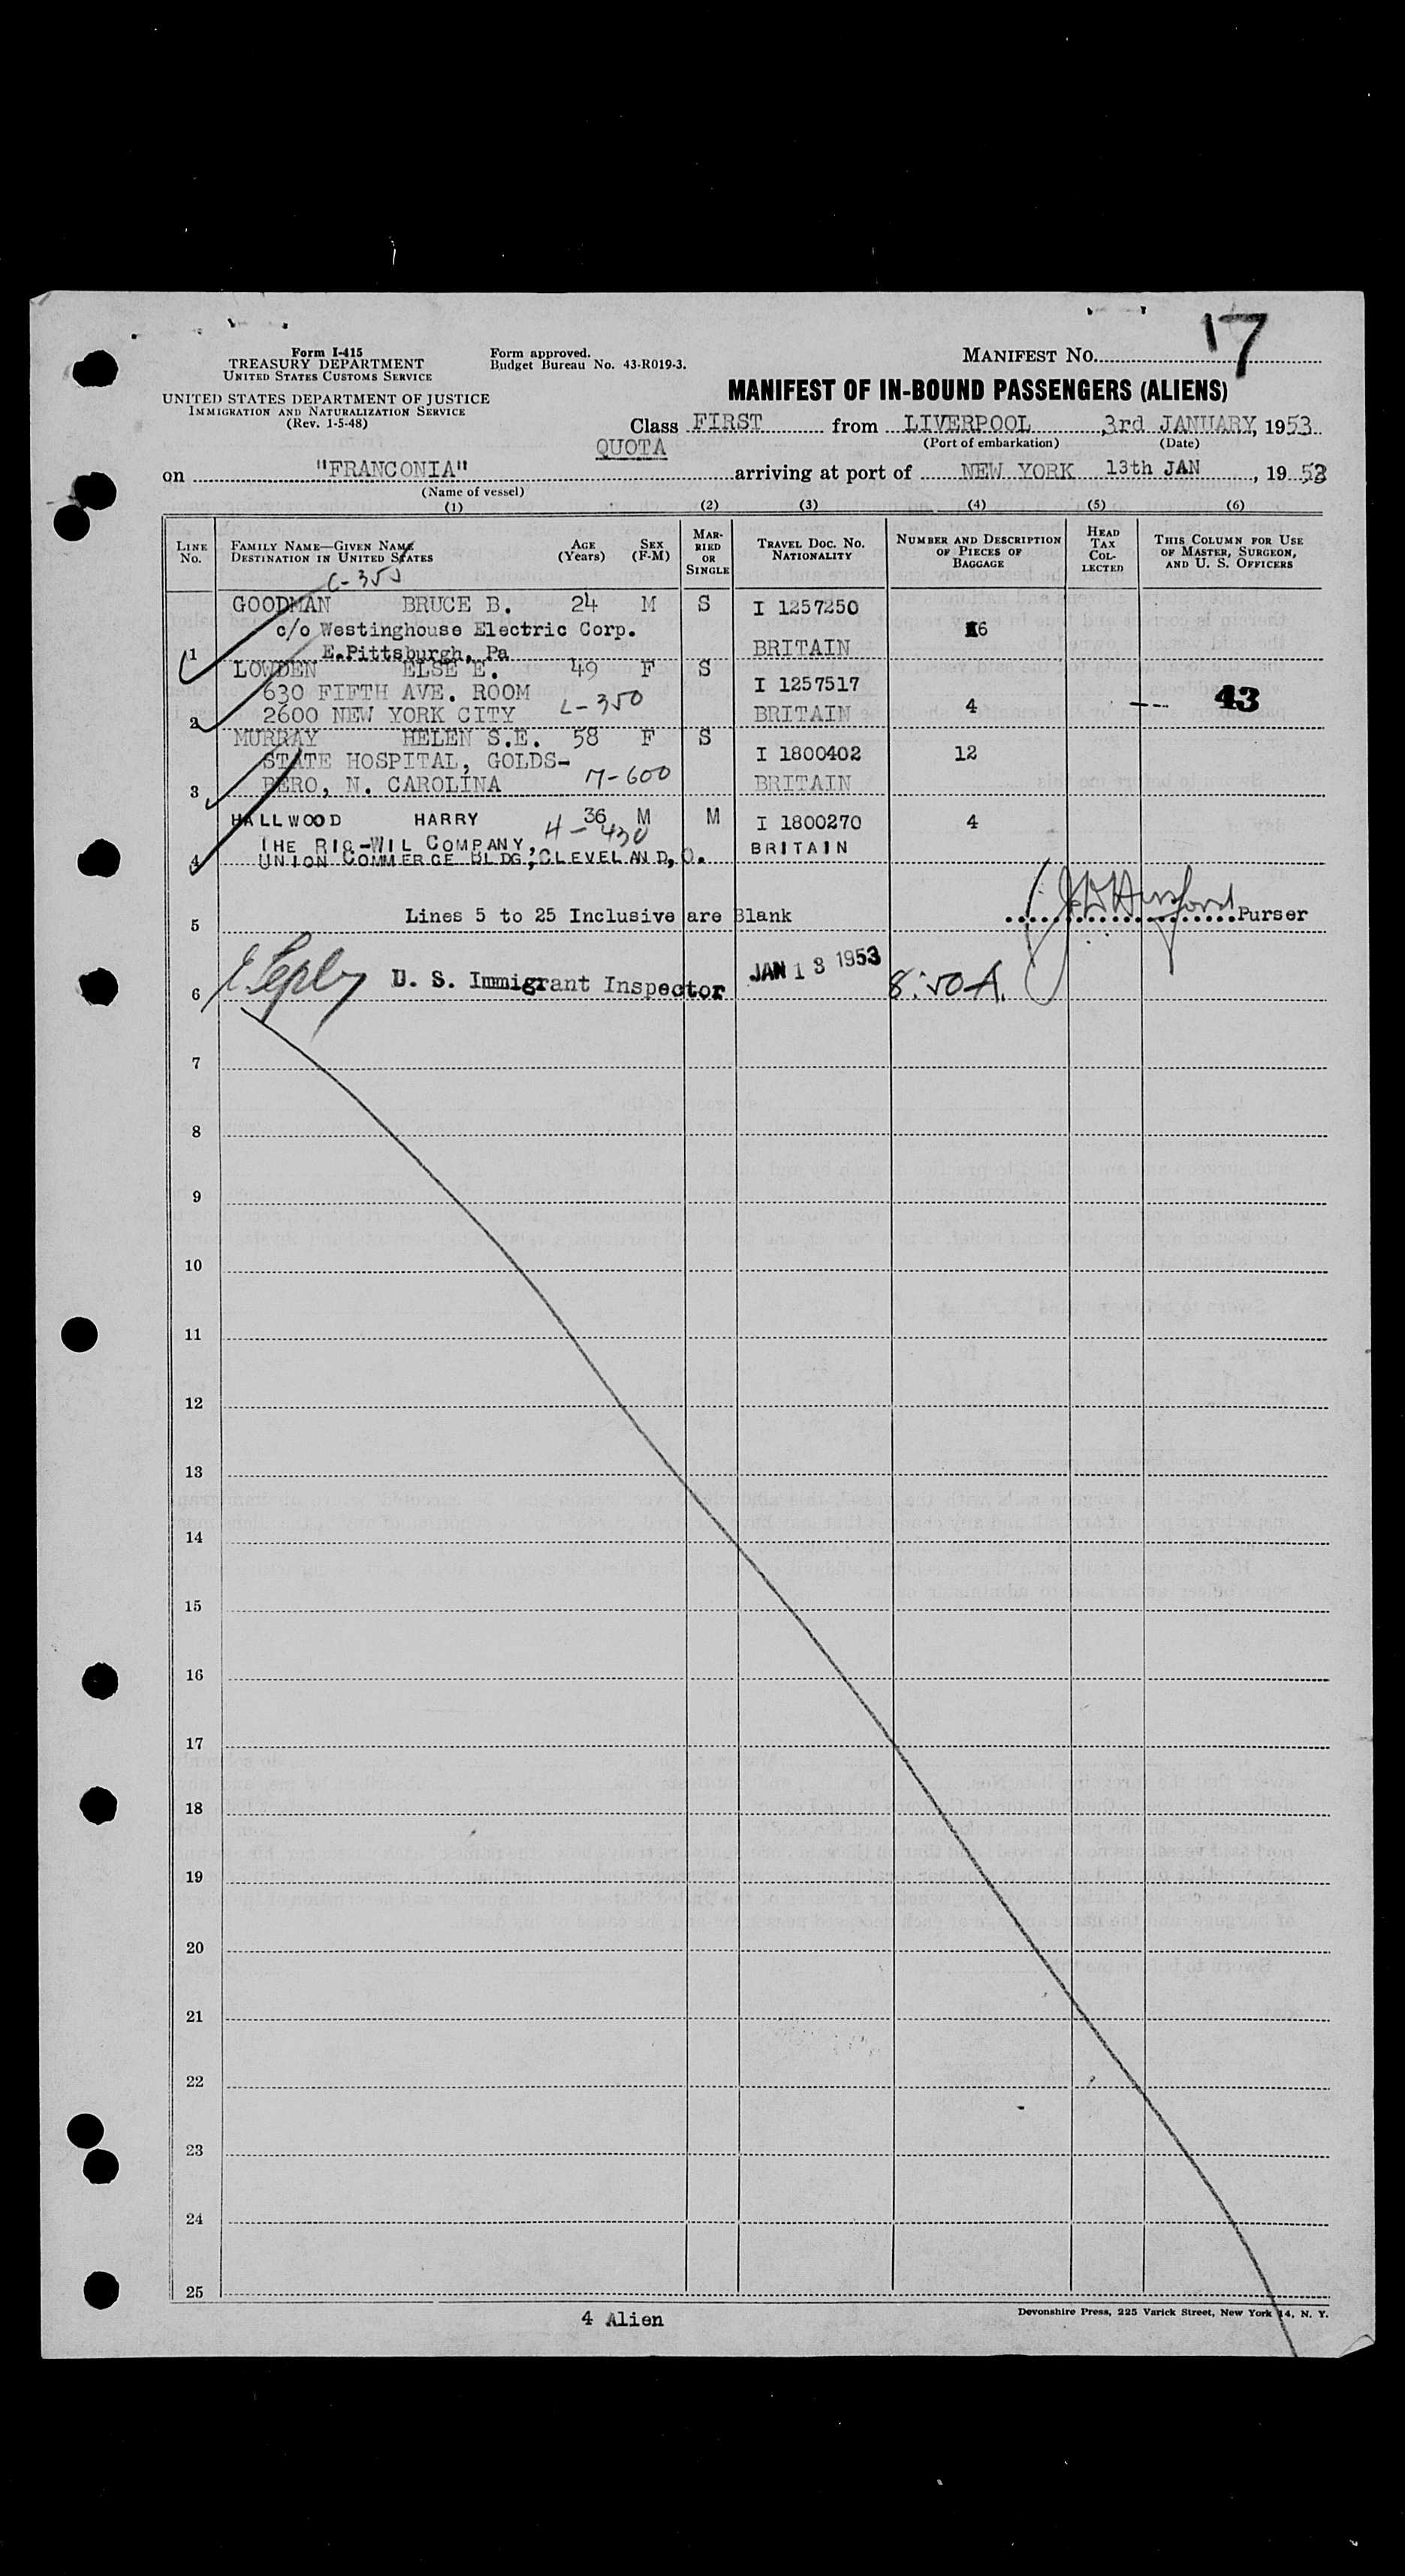 17
Form I-415
TREASURY DEPARTMENT
UNITED STATES CUSTOMS SERVICE
UNITED STATES DEPARTMENT OF JUSTICE
IMMIGRATION AND NATURALIZATION SERVICE
(Rev. 1-5-48)
Form approved.
Budget Bureau No. 43-R019-3.
MANIFEST NO.
MANIFEST OF IN-BOUND PASSENGERS (ALIENS)
Class FIRST from LIVERPOOL 3rd JANUARY, 1953
QUOTA (Port of embarkation) (Date)
on "FRANCONIA" arriving at port of NEW YORK 13th JAN, 19 53
(Name of vessel)
(1) (2) (3) (4) (5) (6)
LINE No. FAMILY NAME—GIVEN NAME DESTINATION IN UNITED STATES AGE (Years) SEX (F-M) MARRIED OR SINGLE TRAVEL DOC. NO. NATIONALITY NUMBER AND DESCRIPTION OF PIECES OF BAGGAGE HEAD TAX COLLECTED THIS COLUMN FOR USE OF MASTER, SURGEON, AND U. S. OFFICERS
GOODMAN BRUCE B. 24 M S I 1257250
c/o Westinghouse Electric Corp. 6
1 E.Pittsburgh, Pa BRITAIN
LOWDEN ELSE E. 49 F S I 1257517
630 FIFTH AVE. ROOM L-350 43
2 2600 NEW YORK CITY BRITAIN 4
MURRAY HELEN S.E. 58 F S
STATE HOSPITAL, GOLDS- I 1800402 12
3 BERO, N. CAROLINA M-600 BRITAIN
HALLWOOD HARRY 36 M M I 1800270 4
THE RIC-WIL COMPANY, H-430 BRITAIN
4 UNION COMMERCE BLDG, CLEVELAND, O.
5 Lines 5 to 25 Inclusive are Blank Purser
6 U. S. Immigrant Inspector JAN 13 1953 8:50A.
7
8
9
10
11
12
13
14
15
16
17
18
19
20
21
22
23
24
25
4 Alien
Devonshire Press, 225 Varick Street, New York 14, N. Y.